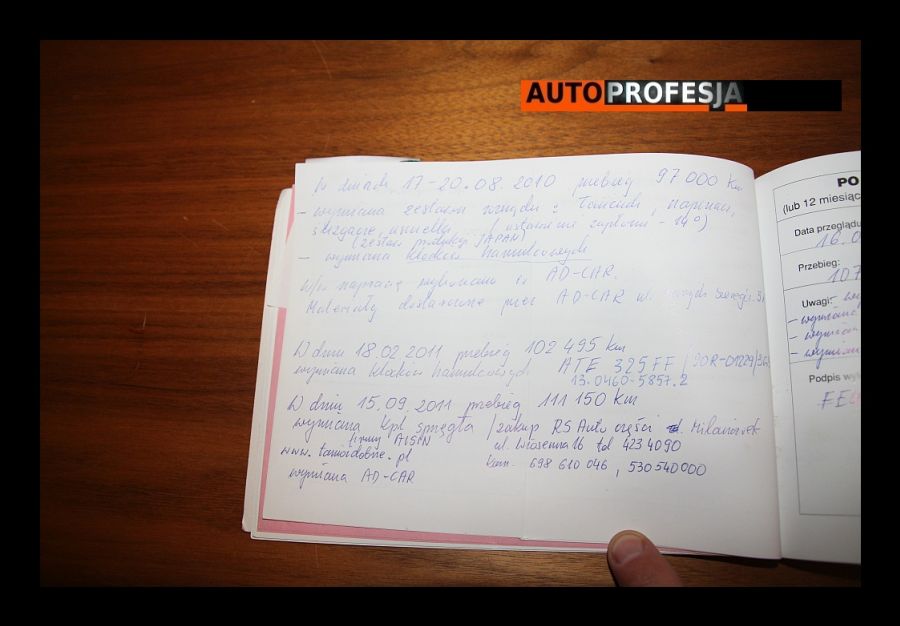 AUTOPROFESJA
W dniach 17-20.08.2010 przebieg 97000 km
- wymiana zestawu rozrządu : łańcuch, napinacz,
ślizgacze, uszczelka ustawienie zapłonu - 14°)
(zestaw produkcji JAPAN)
- wymiana klocków hamulcowych
W/w naprawę wykonano w AD-CAR.
Materiały dostarczone przez AD-CAR ul.
W dniu 18.02.2011 przebieg 102 495 km
wymiana klocków hamulcowych ATE 325FF / 90R-01229/
13.0460-5857.2
W dniu 15.09.2011 przebieg 111 150 km
wymiana kpl sprzęgła /zakup RS Auto części
firmy AISIN ul. Wiosenna 16 tel 423 4090
www.tanioidobre.pl kom. 698 610 046, 530 540 000
wymiana AD-CAR
PO
(lub 12 miesiąc
Data przeglądu
16.0
Przebieg:
107
Uwagi: - wy
- wymiana
- wymian
- wymian
Podpis wyk
FE